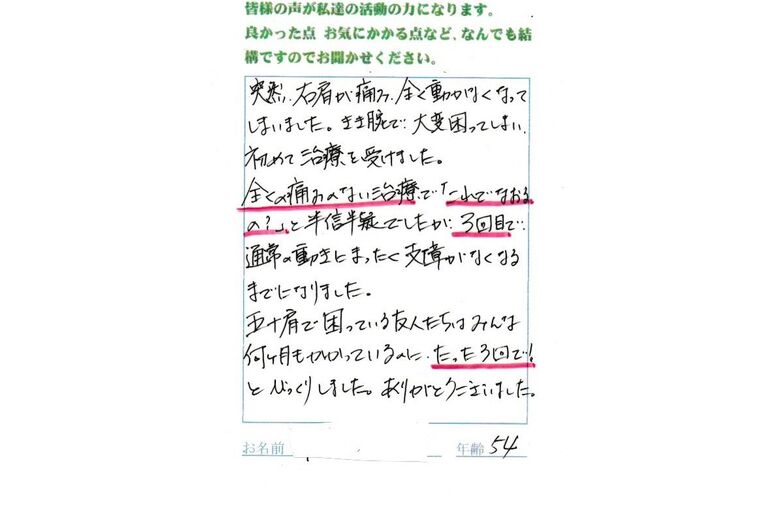 皆様の声が私達の活動の力になります。
良かった点 お気にかかる点など、なんでも結
構ですのでお聞かせください。
突然、右肩が痛み、全く動かなくなって
しまいました。きき腕で、大変困ってしまい、
初めて治療を受けました。
全くの痛みのない治療で「これでなおる
の?」と半信半疑でしたが、3回目で
通常の動きにまったく支障がなくなる
までになりました。
五十肩で困っている友人たちはみんな
何ヶ月もかかっているのに、たった3回で!
とびっくりしました。ありがとうございました。
お名前 年齢 54